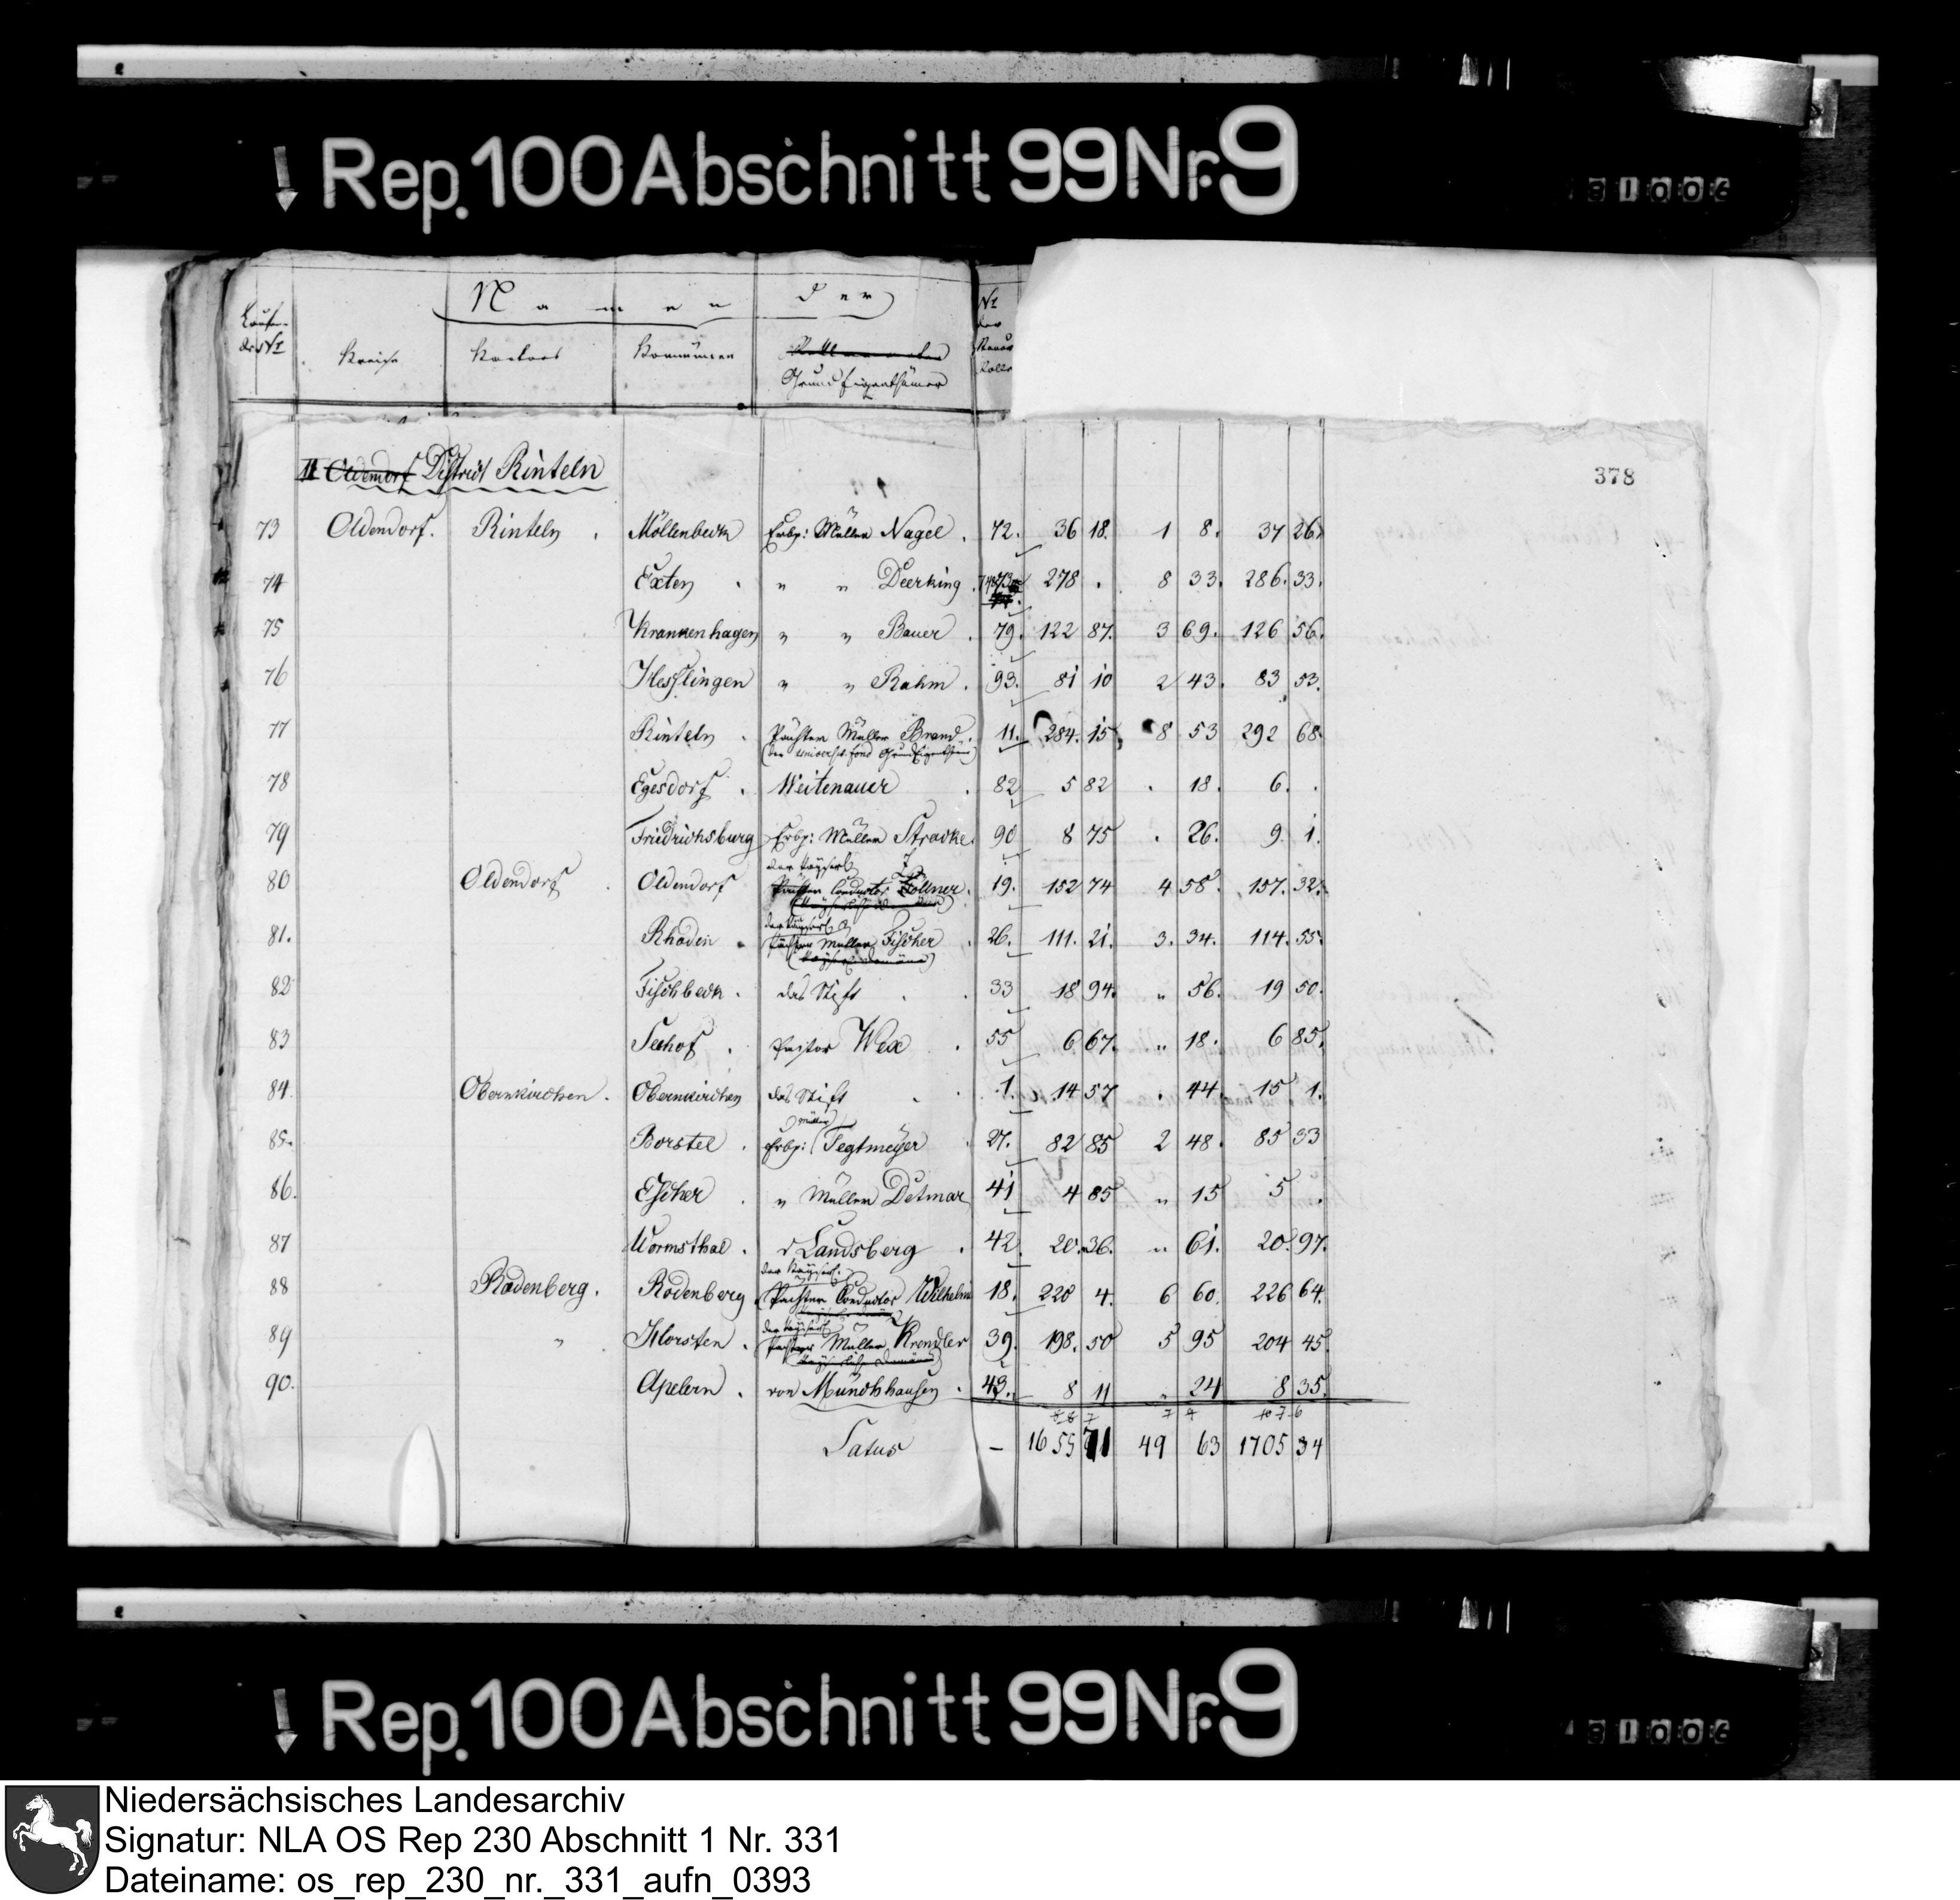 Rep. 100 Abschnitt 99 Nr. 9
81006
Namen der
Laufende Nr
Kreise
Kantons
Kommunen
Grund Eigenthümer
Nr der
378
II Oldendorf District Rinteln
73 Oldendorf. Rinteln. Möllenbeck Erbp: Müller Nagel. 72. 36 18. 1 8. 37 26.
74 Exten " " Deerking. 278 . 8 33. 286. 33.
75 Krankenhagen " " Bauer. 79. 122 87. 3 69. 126 56.
76 Hesslingen " " Rahm. 93. 81 10 2 43. 83 53.
77 Rinteln. Pächter Müller Brand. 11. 284. 15 8 53 292 68.
(der Universit. fond GrundEigenthümer)
78 Egesdorf. Weitenauer. 82 5 82 . 18. 6. .
79 Friedrichsburg Erbp: Müller Stracke. 90 8 75 . 26. 9. 1.
der Kayserl
80 Oldendorf. Oldendorf Pachter Conductor Zöllner. 19. 152 74 4 58. 157. 32.
der Kayserl
81. Rhoden. Pächter Müller Fischer. 26. 111. 21. 3. 34. 114. 55.
82 Fischbeck. das Stift. 33 18 94. " 56. 19 50.
83 Seehof. Pastor Wex. 55 6 67. " 18. 6 85.
84 Obernkirchen. Obernkirchen das Stift. 1. 14 57 . 44. 15 1.
Müller
85. Borstel. Erbp: Tegtmeyer 27. 82 85 2 48. 85 33
86. Escher. " Müller Detmar 41 4 85 " 15 5 .
87 Wormsthal. v Landsberg. 42. 20. 36. " 61. 20. 97.
der Kayserl.
88 Rodenberg. Rodenberg Pachter Conductor Wilhelmi 18. 220 4. 6 60. 226 64.
der Kayserl
89 " Horsten. Pachter Müller Krendler 39. 198. 50 5 95 204 45.
90. Apelern. von Münchhausen. 43. 8 11 " 24 8 35.
Latus — 1655 71 49 63 1705 34
Rep. 100 Abschnitt 99 Nr. 9
81006
Niedersächsisches Landesarchiv
Signatur: NLA OS Rep 230 Abschnitt 1 Nr. 331
Dateiname: os_rep_230_nr._331_aufn_0393